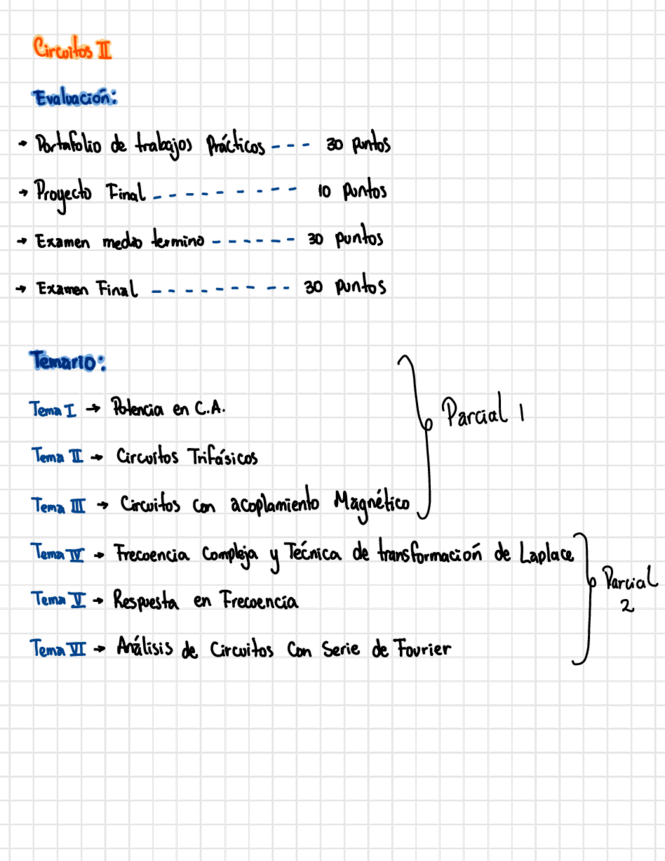 Circuitos II
Evaluación:
→ Portafolio de trabajos Prácticos --- 30 puntos
→ Proyecto Final --------- 10 puntos
→ Examen medio termino ------ 30 puntos
→ Examen Final --------- 30 puntos
Temario:
Tema I → Potencia en C.A.
Parcial 1
Tema II → Circuitos Trifásicos
Tema III → Circuitos con acoplamiento Magnético
Tema IV → Frecuencia Compleja y Técnica de transformación de Laplace
Parcial
2
Tema V → Respuesta en Frecuencia
Tema VI → Análisis de Circuitos Con Serie de Fourier